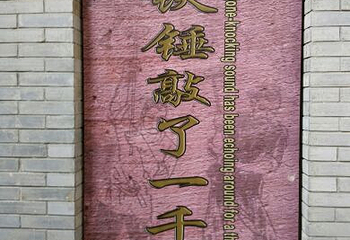 铁锤敲了一千
one knocking sound has been echoing around for a th